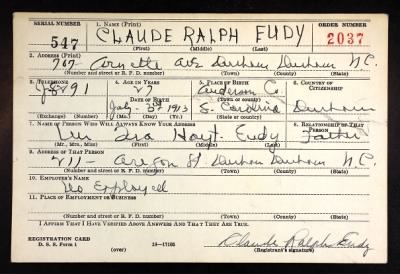 SERIAL NUMBER 1. NAME (Print) ORDER NUMBER
547 CLAUDE RALPH EUDY 2037
(First) (Middle) (Last)
2. ADDRESS (Print)
707 Arnette Ave Durham Durham N.C.
(Number and street or R. F. D. number) (Town) (County) (State)
3. TELEPHONE 4. AGE IN YEARS 5. PLACE OF BIRTH 6. COUNTRY OF CITIZENSHIP
27 Anderson Co
DATE OF BIRTH
July 1913 S. Carolina Durham
(Exchange) (Number) (Mo.) (Day) (Yr.) (State or country)
7. NAME OF PERSON WHO WILL ALWAYS KNOW YOUR ADDRESS 8. RELATIONSHIP OF THAT PERSON
Hoyt Eudy Father
(Mr., Mrs., Miss) (First) (Middle) (Last)
9. ADDRESS OF THAT PERSON
211 - Oregon St Durham Durham N.C.
(Number and street or R. F. D. number) (Town) (County) (State)
10. EMPLOYER'S NAME
Employed
11. PLACE OF EMPLOYMENT OR BUSINESS
(Number and street or R. F. D. number) (Town) (County) (State)
I AFFIRM THAT I HAVE VERIFIED ABOVE ANSWERS AND THAT THEY ARE TRUE.
REGISTRATION CARD
D. S. S. Form 1 (over) 16-17105 Claude Ralph Eudy
(Registrant's signature)